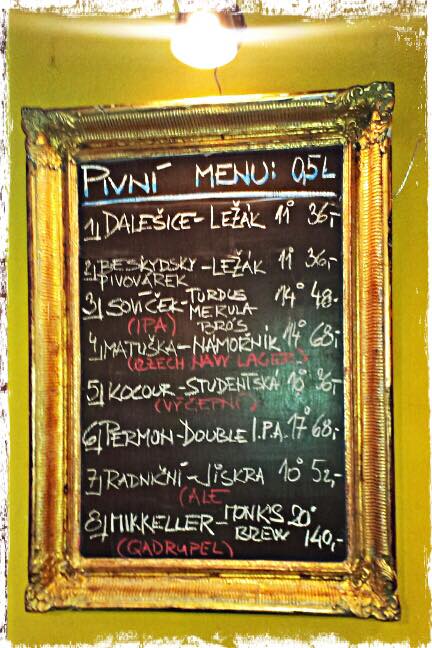 PIVNÍ MENU: 0,5L
1) DALEŠICE - LEŽÁK 11° 36,-
2) BESKYDSKÝ - LEŽÁK 11° 36,-
PIVOVÁREK
3) SOVÍČEK - TURDUS 14° 48,-
MERULA
(IPA) BRO'S
4) MATUŠKA - NÁMOŘNÍK 14° 68,-
(CZECH NAVY LAGER)
5) KOCOUR - STUDENTSKÁ 10° 36,-
(VÝČEPNÍ)
6) PERMON - DOUBLE I.P.A. 17° 68,-
7) RADNIČNÍ - JISKRA 10° 52,-
(ALE
8) MIKKELLER - MONK'S 20°
BREW 140,-
(QADRUPEL)